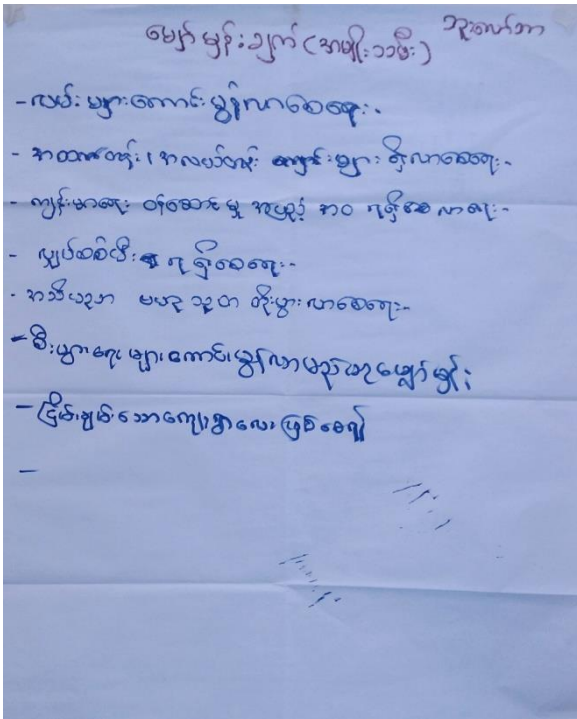 ဘူးလော်ဘာ
မျှော်မှန်းချက် (အမျိုးသမီး)
- လမ်းများကောင်းမွန်လာစေရေး-
- အထက်တန်း၊ အလယ်တန်း ကျောင်းများ ရှိလာစေရေး-
- ကျန်းမာရေး ဝန်ဆောင်မှု အပြည့်အဝ ရရှိစေလာရေး-
- လျှပ်စစ်မီး ရရှိစေရေး-
- အသိပညာ ဗဟုသုတ တိုးပွားလာစေရေး-
- စီးပွားရေးများကောင်းမွန်လာမည်ဟုမျှော်မှန်း
- ငြိမ်းချမ်းသောကျေးရွာလေးဖြစ်စေရန်
-